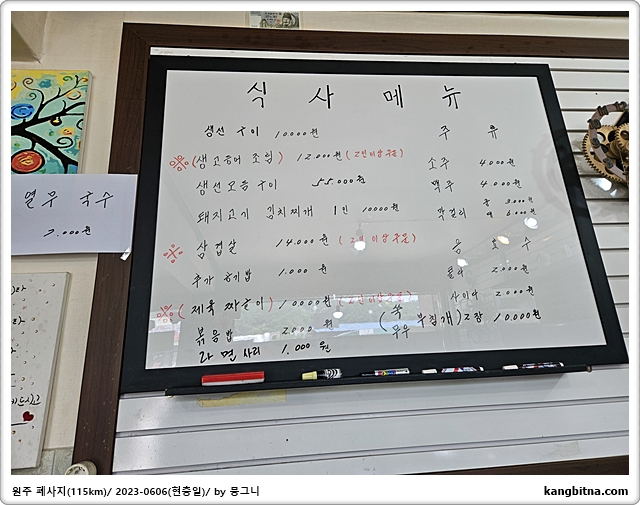 식 사 메 뉴
생선 구이 10000원
※(생고등어 조림) 12.000원 (2인 이상 주문)
생선모듬구이 55.000원
돼지고기 김치찌개 1인 10000원
※ 삼겹살 14.000원 (2인 이상 주문)
추가 공기밥 1.000원
※(제육 짜글이) 10000원 (2인 이상 주문)
볶음밥 2000원
라면사리 1.000원
주 류
소주 4000원
맥주 4000원
막걸리
3.000원
6.000원
음 료 수
콜라 2.000원
사이다 2.000원
(쑥 부침개) 2장 10.000원
열무 국수
7.000원
원주 폐사지(115km)/ 2023-0606(현충일)/ by 뭉그니
kangbitna.com